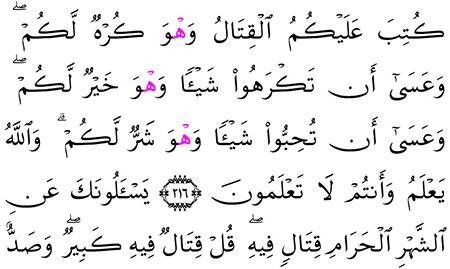 كُتِبَ عَلَيْكُمُ ٱلْقِتَالُ وَهْوَ كُرْهٌ لَّكُمْ ۖ
وَعَسَىٰٓ أَن تَكْرَهُوا۟ شَيْـًٔا وَهْوَ خَيْرٌ لَّكُمْ ۖ
وَعَسَىٰٓ أَن تُحِبُّوا۟ شَيْـًٔا وَهْوَ شَرٌّ لَّكُمْ ۗ وَٱللَّهُ
يَعْلَمُ وَأَنتُمْ لَا تَعْلَمُونَ ﴿٢١٦﴾ يَسْـَٔلُونَكَ عَنِ
ٱلشَّهْرِ ٱلْحَرَامِ قِتَالٍ فِيهِ ۖ قُلْ قِتَالٌ فِيهِ كَبِيرٌ ۖ وَصَدٌّ